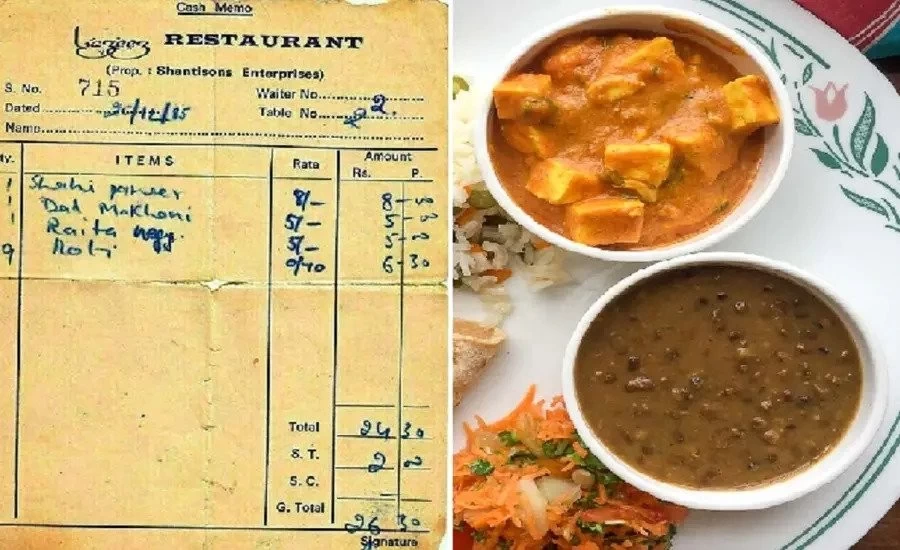 Cash Memo
Lazeez RESTAURANT
(Prop. : Shantisons Enterprises)
S. No. 715 Waiter No.
Dated 20/12/85 Table No. 2.
Name
ty. ITEMS Rata Amount
Rs. P.
1 Shahi paneer 8/- 8-00
1 Dal Makhani 5/- 5-00
1 Raita 5/- 5-00
9 Roti 0/70 6-30
Total 24 30
S. T. 2 00
S. C.
G. Total 26 30
Signature